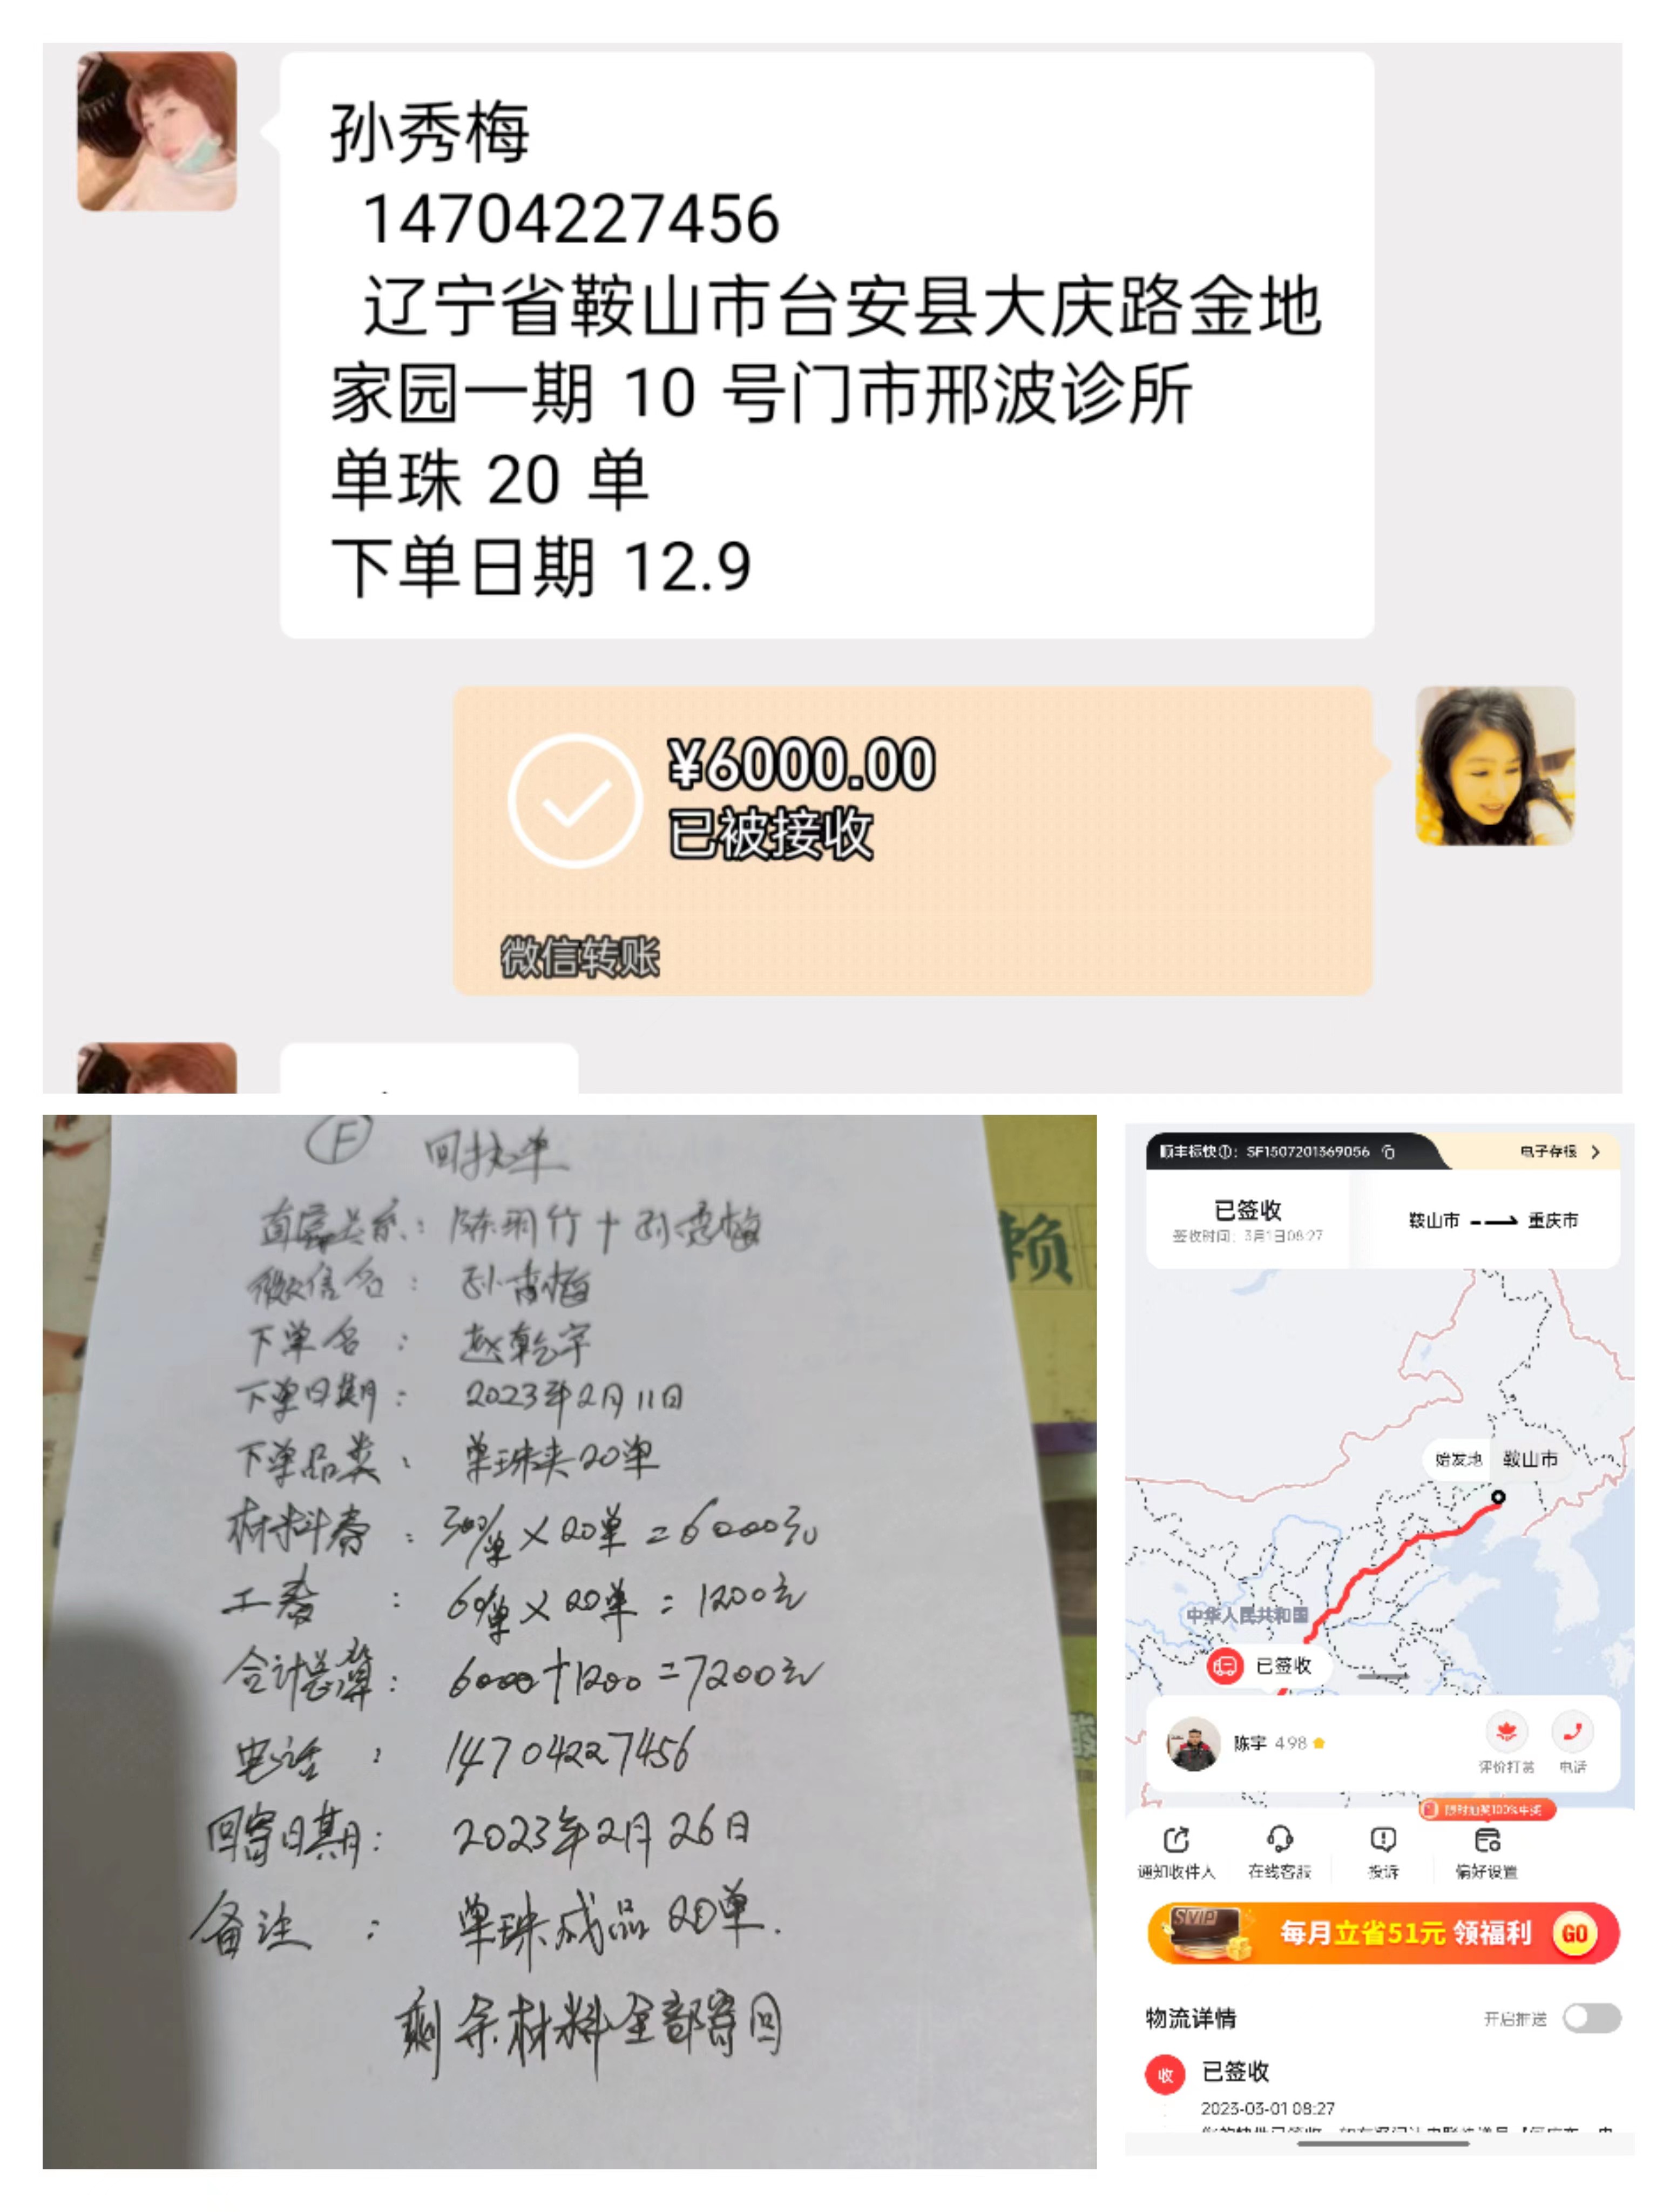 孙秀梅
14704227456
辽宁省鞍山市台安县大庆路金地
家园一期 10 号门市邢波诊所
单珠 20 单
下单日期 12.9
¥6000.00
已被接收
微信转账
F 回执单
直属关系：陈羽竹+孙秀梅
微信名：孙秀梅
下单名：赵乾宇
下单日期：2023年2月11日
下单品类：单珠夹20单
材料费：300/单×20单=6000元
工费：60/单×20单=1200元
合计总算：6000+1200=7200元
电话：14704227456
回寄日期：2023年2月26日
备注：单珠成品20单.
剩余材料全部寄回
顺丰标快①：SF1507201369056
电子存根
已签收
签收时间：3月1日08:27
鞍山市
重庆市
始发地 鞍山市
中华人民共和国
已签收
陈宇 4.98
评价打赏
电话
限时抽奖100%中奖
通知收件人
在线客服
投诉
偏好设置
SVIP
每月立省51元 领福利
GO
物流详情
开启推送
收
已签收
2023-03-01 08:27